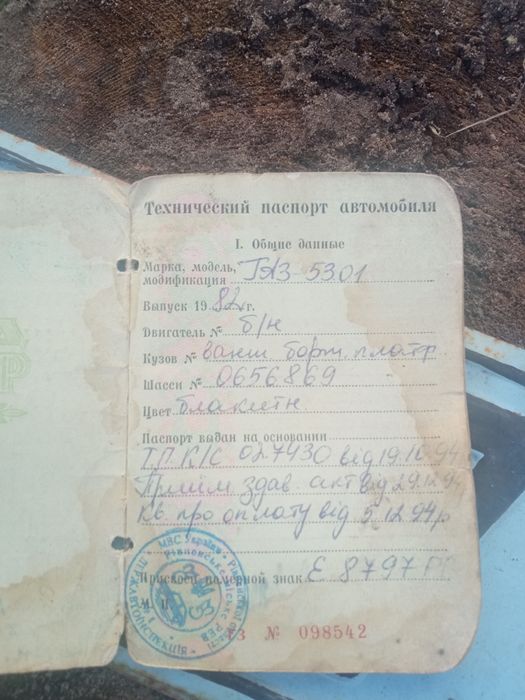 Технический паспорт автомобиля
I. Общие данные
Марка, модель, ГАЗ-5301
модификация
Выпуск 1982 г.
Двигатель № б/н
Кузов № вант борт. платф
Шасси № 0656869
Цвет блакитн
Паспорт выдан на основании
ТП К/С 027430 від 19.10.94
Прийм здав. акт від 29.12.94
Кв про оплату від 5.12.94р
Присвоен номерной знак Е 8797 РВ
М. П.
№ 098542